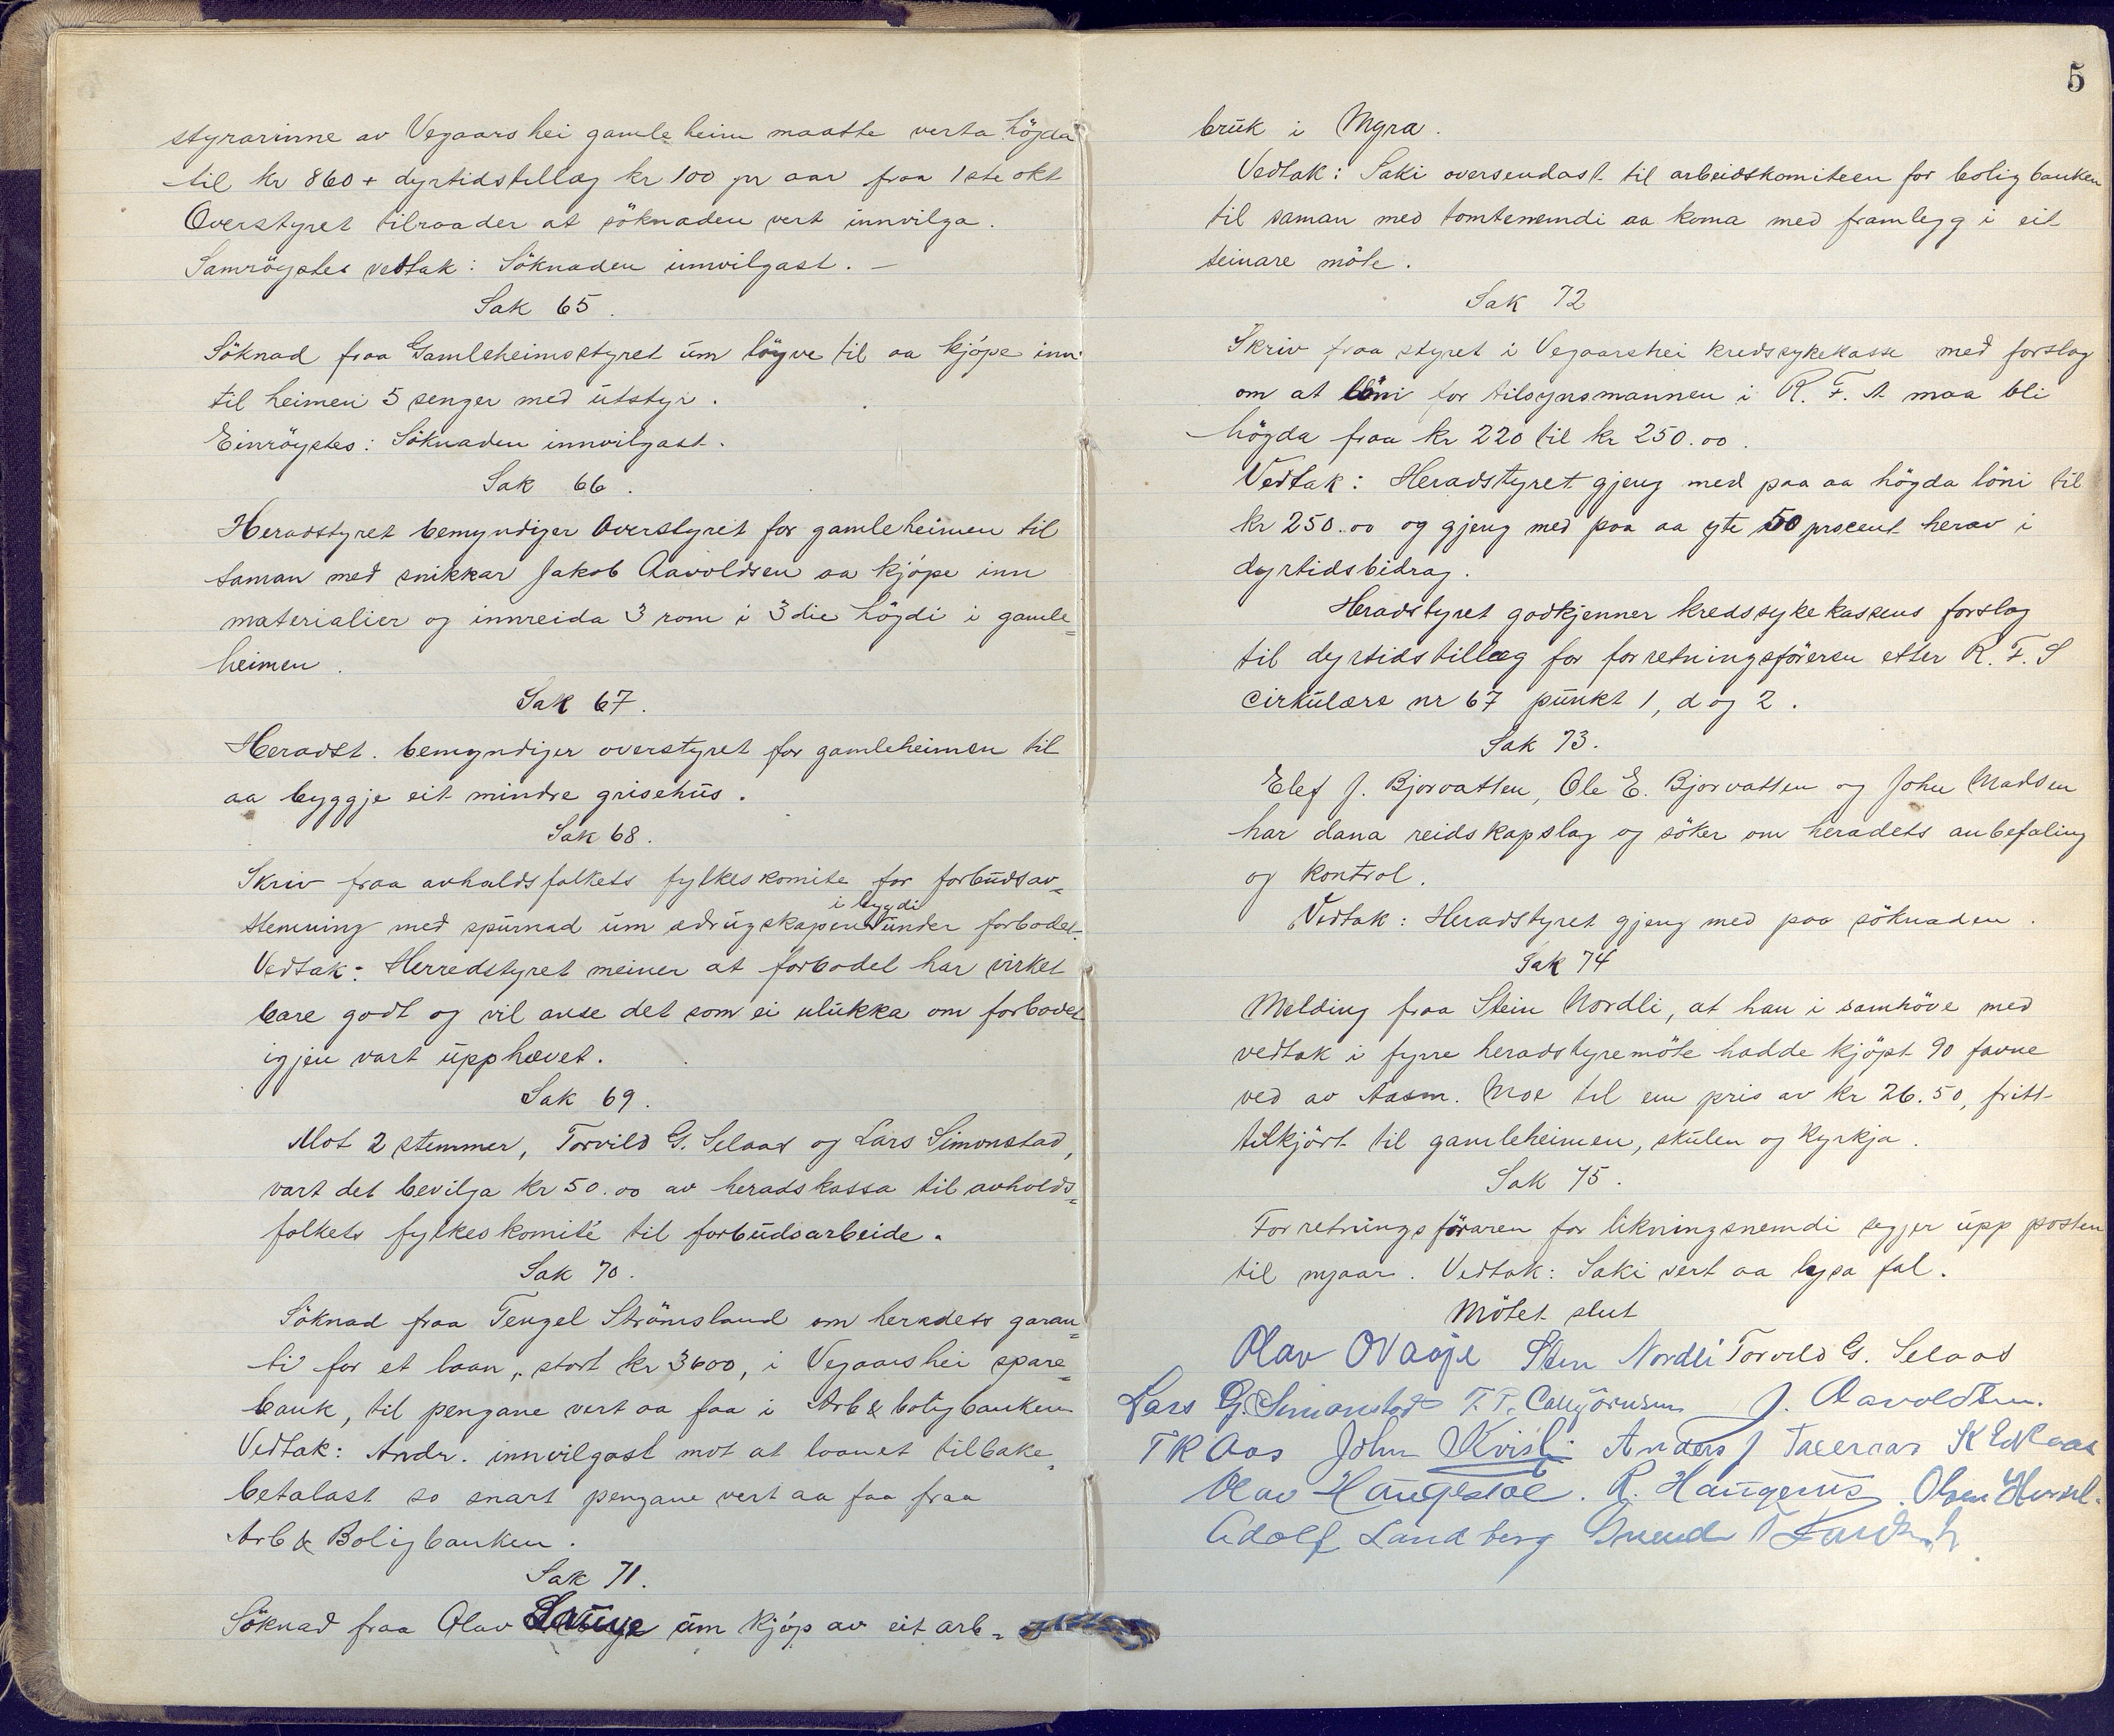 styrarinne av Vegaarshei gamleheim maatte verta högda
til kr 860 + dyrtidstillæg kr 100 pr aar fraa 1ste okt
Overstyret tilraader at söknaden vert innvilga.
Samröystes vedtak: Söknaden innvilgast. —
Sak 65.
Söknad fraa Gamleheimsstyret um löyve til aa kjöpe inn
til heimen 5 senger med utstyr.
Einröystes: Söknaden innvilgast.
Sak 66.
Heradstyret bemyndiger Overstyret for gamleheimen til
saman med snikkar Jakob Aavoldsen aa kjöpe inn
materialier og innreida 3 rom i 3die högdi i gamle=
heimen.
Sak 67.
Heradst. bemyndiger overstyret for gamleheimen til
aa byggje eit mindre grisehus.
Sak 68.
Skriv fraa avholdsfolkets fylkeskomite for forbudsav=
i bygdi
stemning med spurnad um ædrugskapen under forbodet.
Vedtak: Herredstyret meiner at forbodet har virket
bare godt og vil anse det som ei ulukka om forbodet
igjen vart upphævet.
Sak 69.
Mot 2 stemmer, Torvild G. Selaas og Lars Simonstad,
vart det bevilga kr 50.00 av heradskassa til avholds=
folkets fylkeskomité til forbudsarbeide.
Sak 70.
Söknad fraa Tengel Strömsland om heradets garan=
ti for et laan, stort kr 3600, i Vegaarshei spare=
bank, til pengane vert aa faa i Arb & boligbanken
Vedtak: Andr. innvilgast mot at laanet tilbake=
betalast so snart pengane vert aa faa fraa
Arb & Boligbanken.
Sak 71.
Söknad fraa Olav um kjöp av eit arb=
5
bruk i Myra.
Vedtak: Saki oversendast til arbeidskomiteen for boligbanken
til saman med tomtenemndi aa koma med framlegg i eit
seinare möte.
Sak 72
Skriv fraa styret i Vegaarshei kredssykekasse med forslag
om at löni for tilsynsmannen i R. F. A maa bli
högda fraa kr 220 til kr 250.00.
Vedtak: Heradstyret gjeng med paa aa högda löni til
kr 250.00 og gjeng med paa aa yte 50 procent herav i
dyrtidsbidrag.
Heradstyret godkjenner kredssykekassens forslag
til dyrtidstillæg for forretningsföreren etter R. F. S
cirkulære nr 67 punkt 1, d og 2.
Sak 73.
Elef J. Bjorvatten, Ole E. Bjorvatten og John Madsen
har dana reidskapslag og söker om heradets anbefaling
og kontrol.
Vedtak: Heradstyret gjeng med paa söknaden.
Sak 74
Melding fraa Stein Nordli, at han i samhöve med
vedtak i fyrre heradstyremöte hadde kjöpt 90 favne
ved av Aasm. Moe til ein pris av kr 26.50, fritt
tilkjört til gamleheimen, skulen og kyrkja.
Sak 75.
Forretningsföraren for likningsnemdi segjer upp posten
til nyaar. Vedtak: Saki vert aa lysa fal.
Mötet slut
Olav Stein Nordli Torvild G. Selaas
Lars G. Simonstad T. T. J. Aavoldsen.
T R Aas John Kvisli Anders J
Olav Haugestöl. R. Haugenes. Olsen
Adolf Landberg